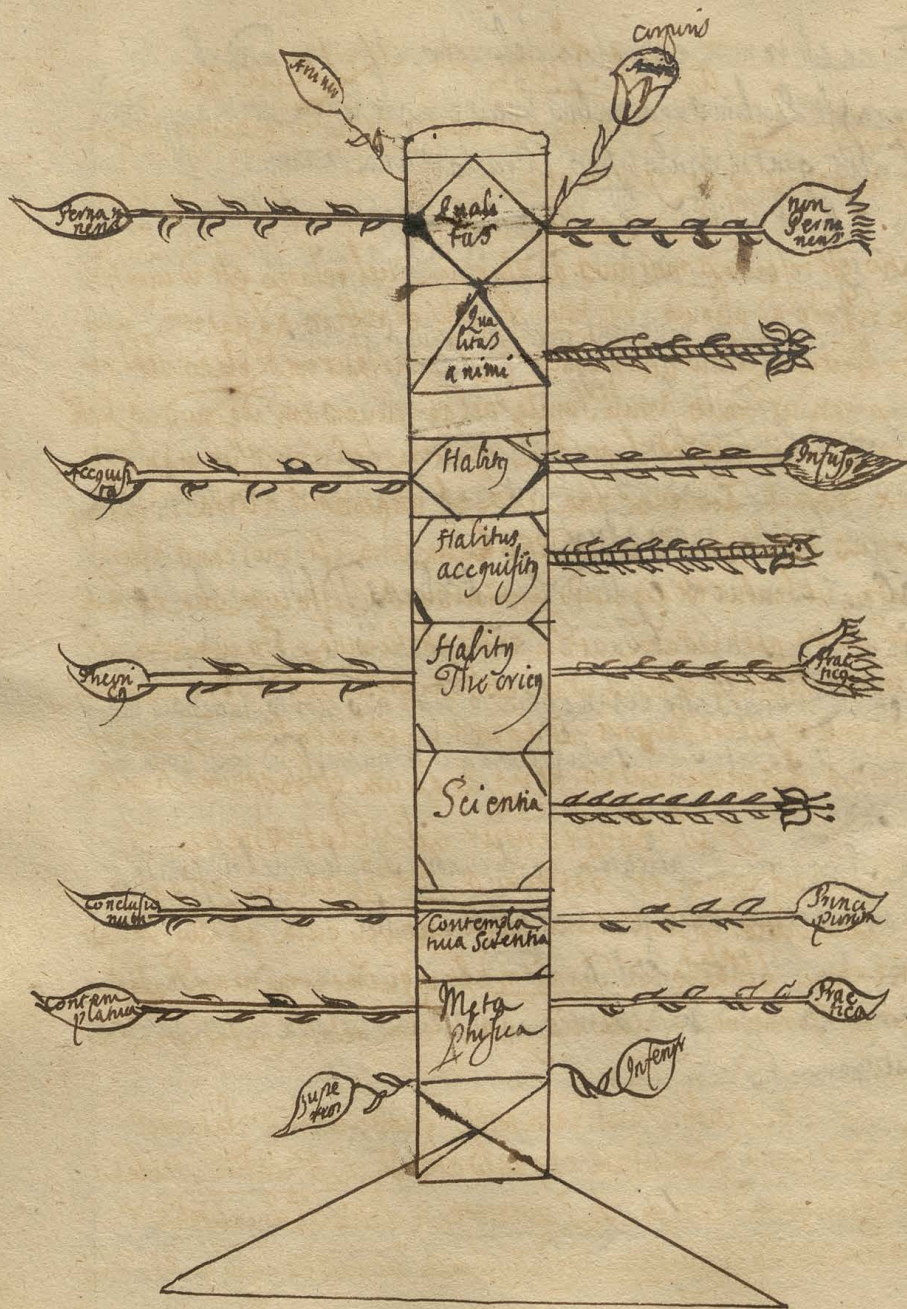 corporis
Animi
Perma
nens
Quali
tas
non
Perma
nens
Qua
litas
animi
Acquisi
tq
Habitq
Infusq
Habitus
accquisitq
Theori
cq
Habitq
Theoricq
Prac
ticq
Scientia
Conclusio
num
Contempla
tiua Scientia
Princi
piorum
Contem
platiua
Meta
phisica
Prac
tica
Supe
rior
Inferior